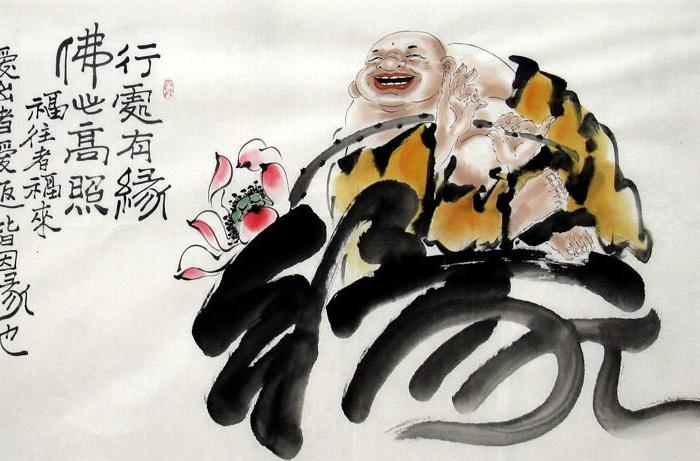 缘
行處有緣
佛高照
福往者福來
愛出者愛返皆因緣也